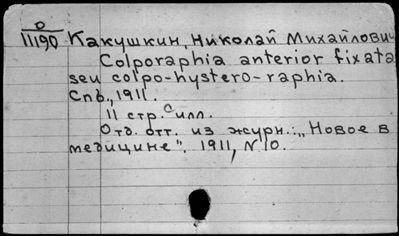 О
11190
Какушкин, Николай Михайлович
Colporaphia anterior fixata
seu colpo-hystero-raphia.
Спб., 1911.
11 стр. с илл.
Отд. отт. из журн.: „Новое в
медицине". 1911, №10.